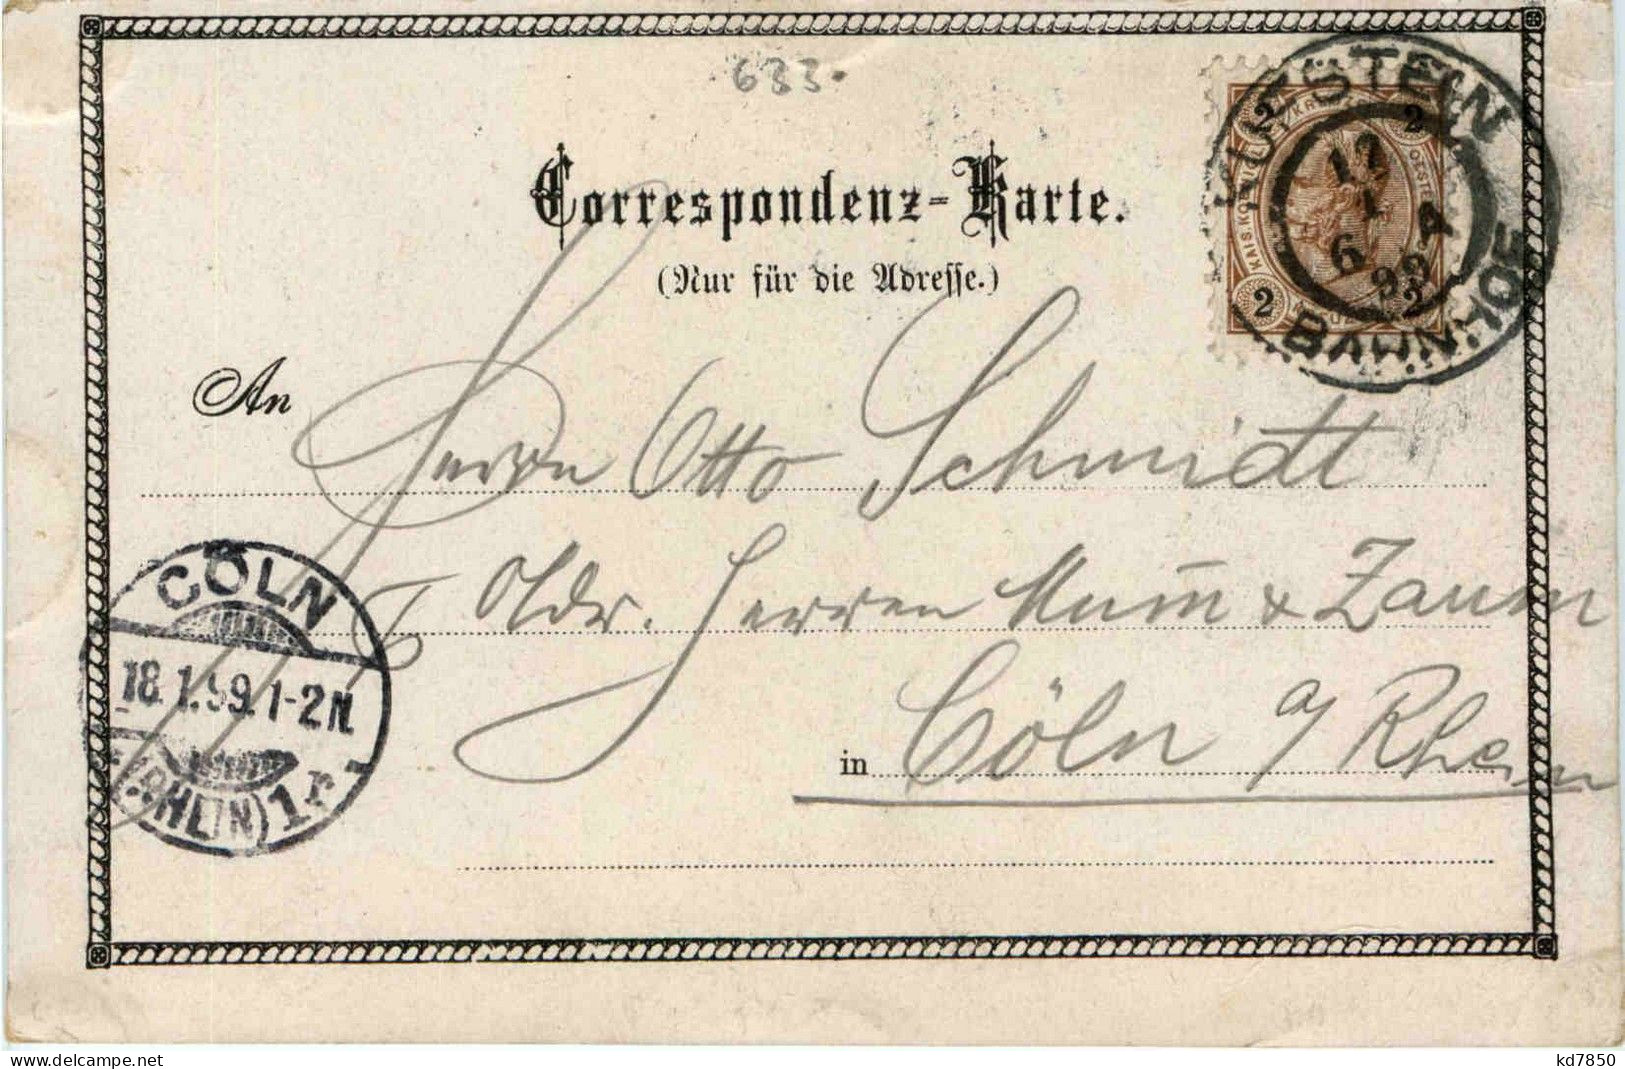 633.
Correspondenz-Karte.
(Nur für die Adresse.)
KUFSTEIN
17
1
6 A
99
BAHNHOF
2 2
2 2
An Herrn Otto Schmidt
Herren Mum̄ & Zaum
in Cöln a/Rhein
CÖLN
18.1.99.1-2N.
(RHEIN) 1r
kd7850